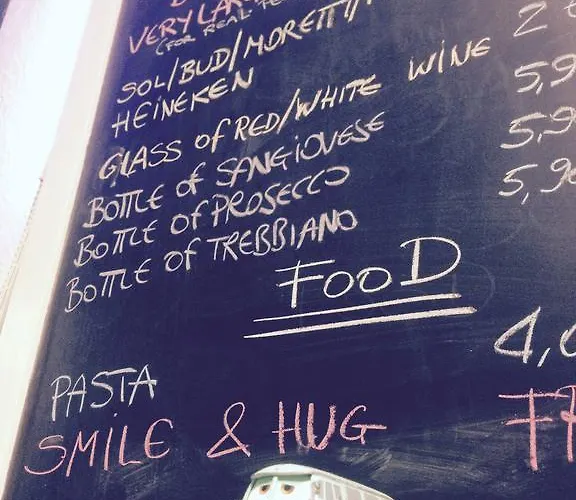 VERY LAR
(FOR REAL
SOL/BUD/MORETTI/
HEINEKEN
GLASS OF RED/WHITE WINE 2
BOTTLE OF SANGIOVESE 5,9
BOTTLE OF PROSECCO 5,9
BOTTLE OF TREBBIANO 5,90
FOOD
PASTA 4,
SMILE & HUG FR